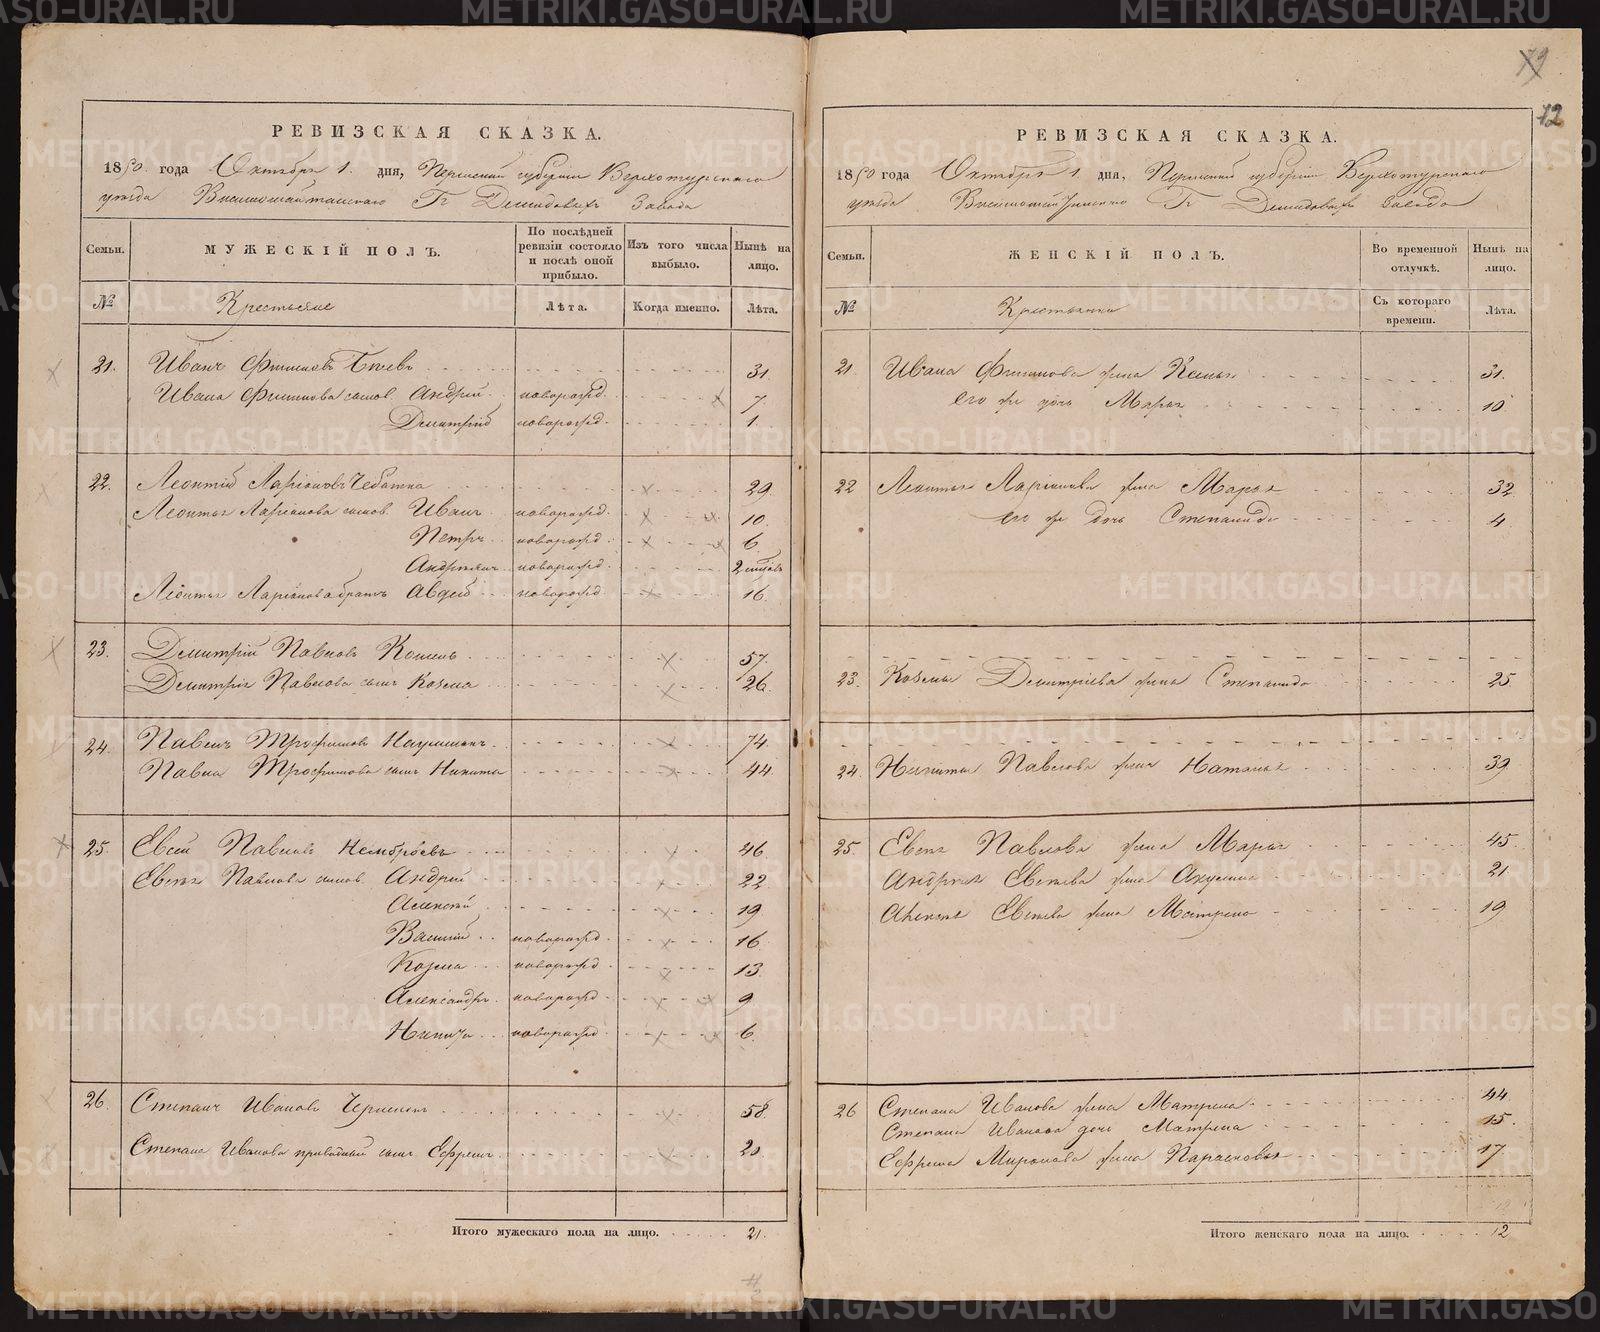 79
12
РЕВИЗСКАЯ СКАЗКА.
1850 года Октября 1. дня, Пермской губернии Верхотурского
уезда Висимошайтанского Гг Демидовыхъ Завода
Семьи. МУЖЕСКІЙ ПОЛЪ. По послѣдней ревизіи состояло и послѣ оной прибыло. Изъ того числа выбыло. Нынѣ на лицо.
№ Крестьяне Лѣта. Когда именно. Лѣта.
21. Иванъ 31
Ивана сынов. Андрей новорожд. 7
Дмитрій новорожд. 1.
22. Леонтій Ларіоновъ 29
Леонтья Ларіонова сынов. Иванъ новорожд. 10
Петръ новорожд. 6
новорожд. 2
Леонтья Ларіонова братъ Авдей новорожд. 16
23. Дмитрій Павловъ 57
Дмитрія Павлова сынъ Козма 26
24. Павелъ Трофимовъ 74
Павла Трофимова сынъ Никита 44
25. Евсей Павловъ 46
Евсея Павлова сынов. Андрей 22
Алексей 19
Василій новорожд. 16
Козма новорожд. 13
Александръ новорожд. 9
Никита новорожд. 6
26. Степанъ Ивановъ 58
Степана Иванова сынъ Ефремъ 20
Итого мужескаго пола на лицо. 21.
РЕВИЗСКАЯ СКАЗКА.
1850 года Октября 1 дня, Пермской губерніи Верхотурского
уезда Гг Демидовыхъ завода
Семьи. ЖЕНСКІЙ ПОЛЪ. Во временной отлучкѣ. Нынѣ на лицо.
№ Крестьянки Съ котораго времени. Лѣта.
21. Ивана жена 31.
его же дочь Марья 10
22 Леонтья Ларіонова жена Марья 32
его же дочь Степанида 4
23. Козмы Дмитріева жена Степанида 25
24. Никиты Павлова жена Наталья 39
25. Евсея Павлова жена Марья 45
Андрея Евсеева жена Акулина 21
Алексея Евсеева жена Матрена 19
26 Степана Иванова жена Матрена 44
Степана Иванова дочь Матрена 15.
Ефрема Миронова жена Парасковья 17
Итого женскаго пола на лицо. 12
METRIKI.GASO-URAL.RU